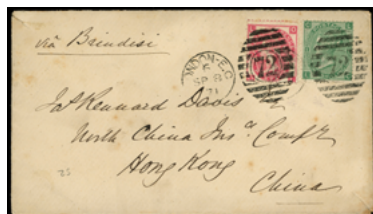 via Brindisi
LONDON-E.C
SP 8
71
72
Kennard Davis
North China Insce Compy
Hong Kong
China